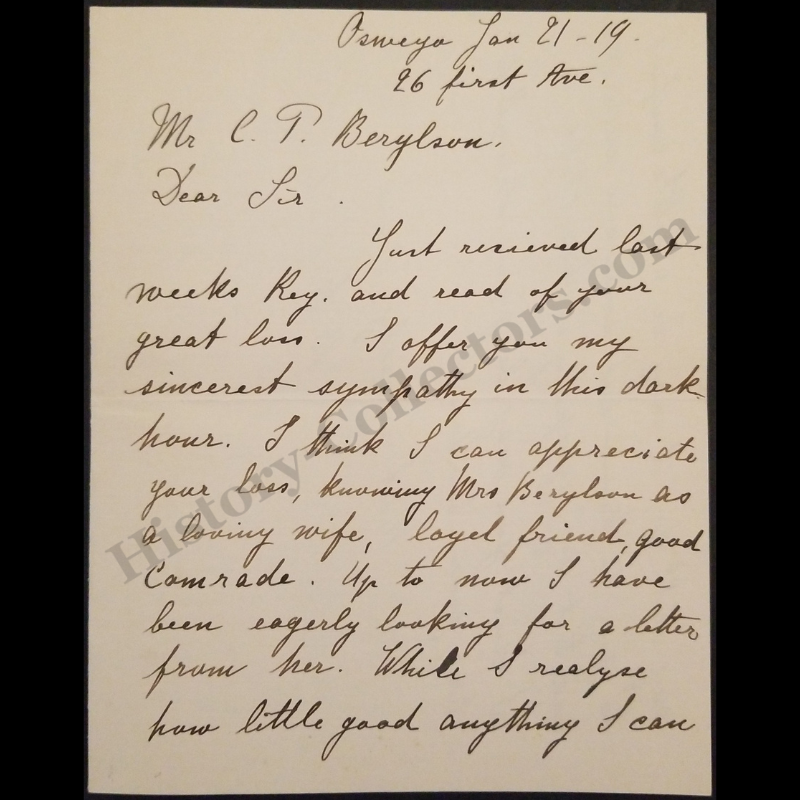 Oswego Jan 21-19.
26 first Ave.
Mr C. T. Berylson.
Dear Sir.
Just recieved last
weeks Key. and read of your
great loss. I offer you my
sincerest sympathy in this dark
hour. I think I can appreciate
your loss, knowing Mrs Berylson as
a loving wife, loyel friend, good
Comrade. Up to now I have
been eagerly looking for a letter
from her. While I realyse
how little good anything I can
History-Collectors.com